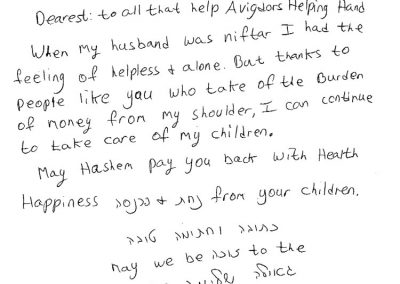 Dearest: to all that help Avigdors Helping Hand
When my husband was niftar I had the
feeling of helpless & alone. But thanks to
people like you who take of the Burden
of money from my shoulder, I can continue
to take care of my children.
May Hashem pay you back with Health
Happiness נחת & from your children.
כתיבה וחתימה טובה
may we be זוכה to the
גאולה